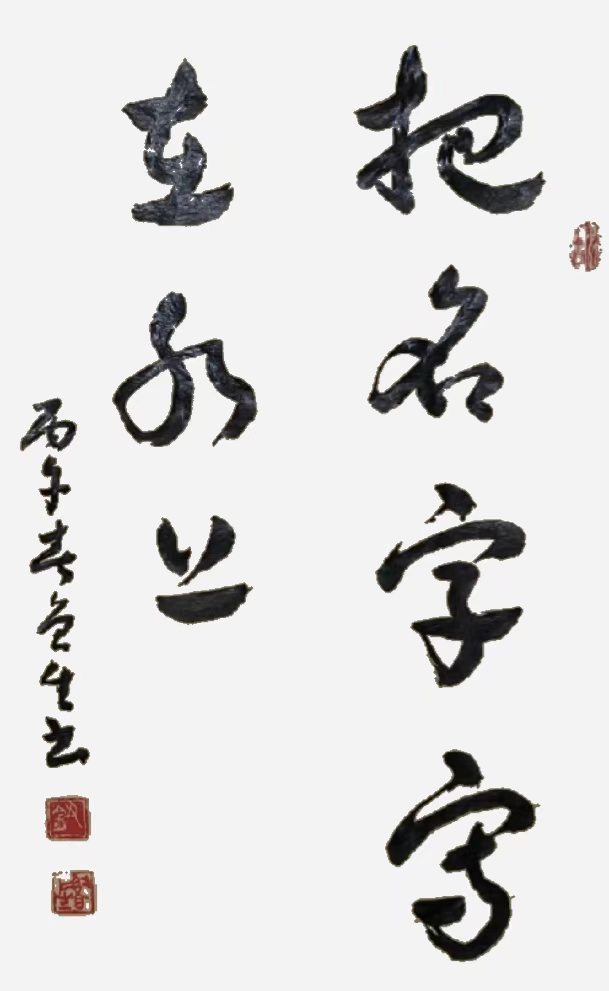 把名字写
在水上
丙午春鱼生书